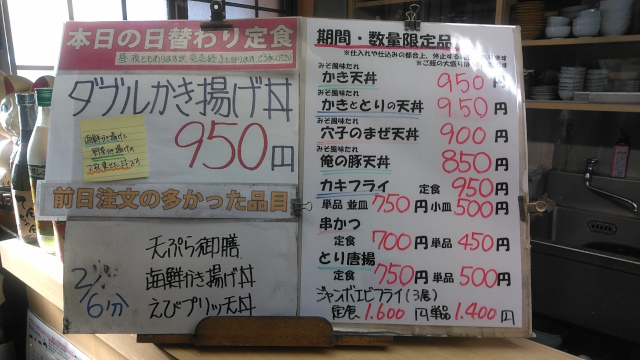 本日の日替わり定食
昼・夜ともありますが、完売終了となります ご了承ください
ダブルかき揚げ丼
海鮮かき揚げと
野菜かき揚げの
2枚乗せた丼です
950円
前日注文の多かった品目
2/6分
天ぷら御膳
海鮮かき揚げ丼
えびプリッ天丼
期間・数量限定品
※仕入れや仕込みの都合上、休止する
※ご飯の大盛り
みそ風味たれ
かき天丼 950円
みそ風味たれ
かきととりの天丼 950円
みそ風味たれ
穴子のまぜ天丼 900円
みそ風味たれ
俺の豚天丼 850円
カキフライ 定食 950円
単品 並皿 750円 小皿 500円
串かつ
定食 700円 単品 450円
とり唐揚
定食 750円 単品 500円
ジャンボエビフライ(3尾)
定食 1.600円 単品 1.400円